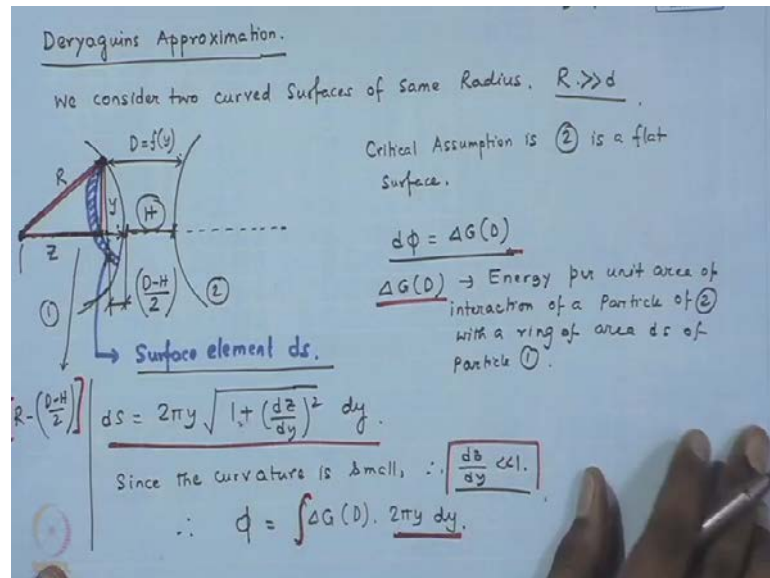 Deryaguins Approximation.
We consider two curved Surfaces of Same Radius. R >> d.
D = f(y)
R
y
H
Z
(D-H/2)
①
②
Critical Assumption is ② is a flat
Surface.
dϕ = ΔG(D)
ΔG(D) → Energy per unit area of
interaction of a Particle of ②
with a ring of area ds of
Particle ①.
Surface element ds.
[R - (D-H/2)]
ds = 2πy √(1 + (dz/dy)²) dy.
Since the curvature is Small, ∴ dz/dy <<1.
∴ ϕ = ∫ΔG(D). 2πy dy.